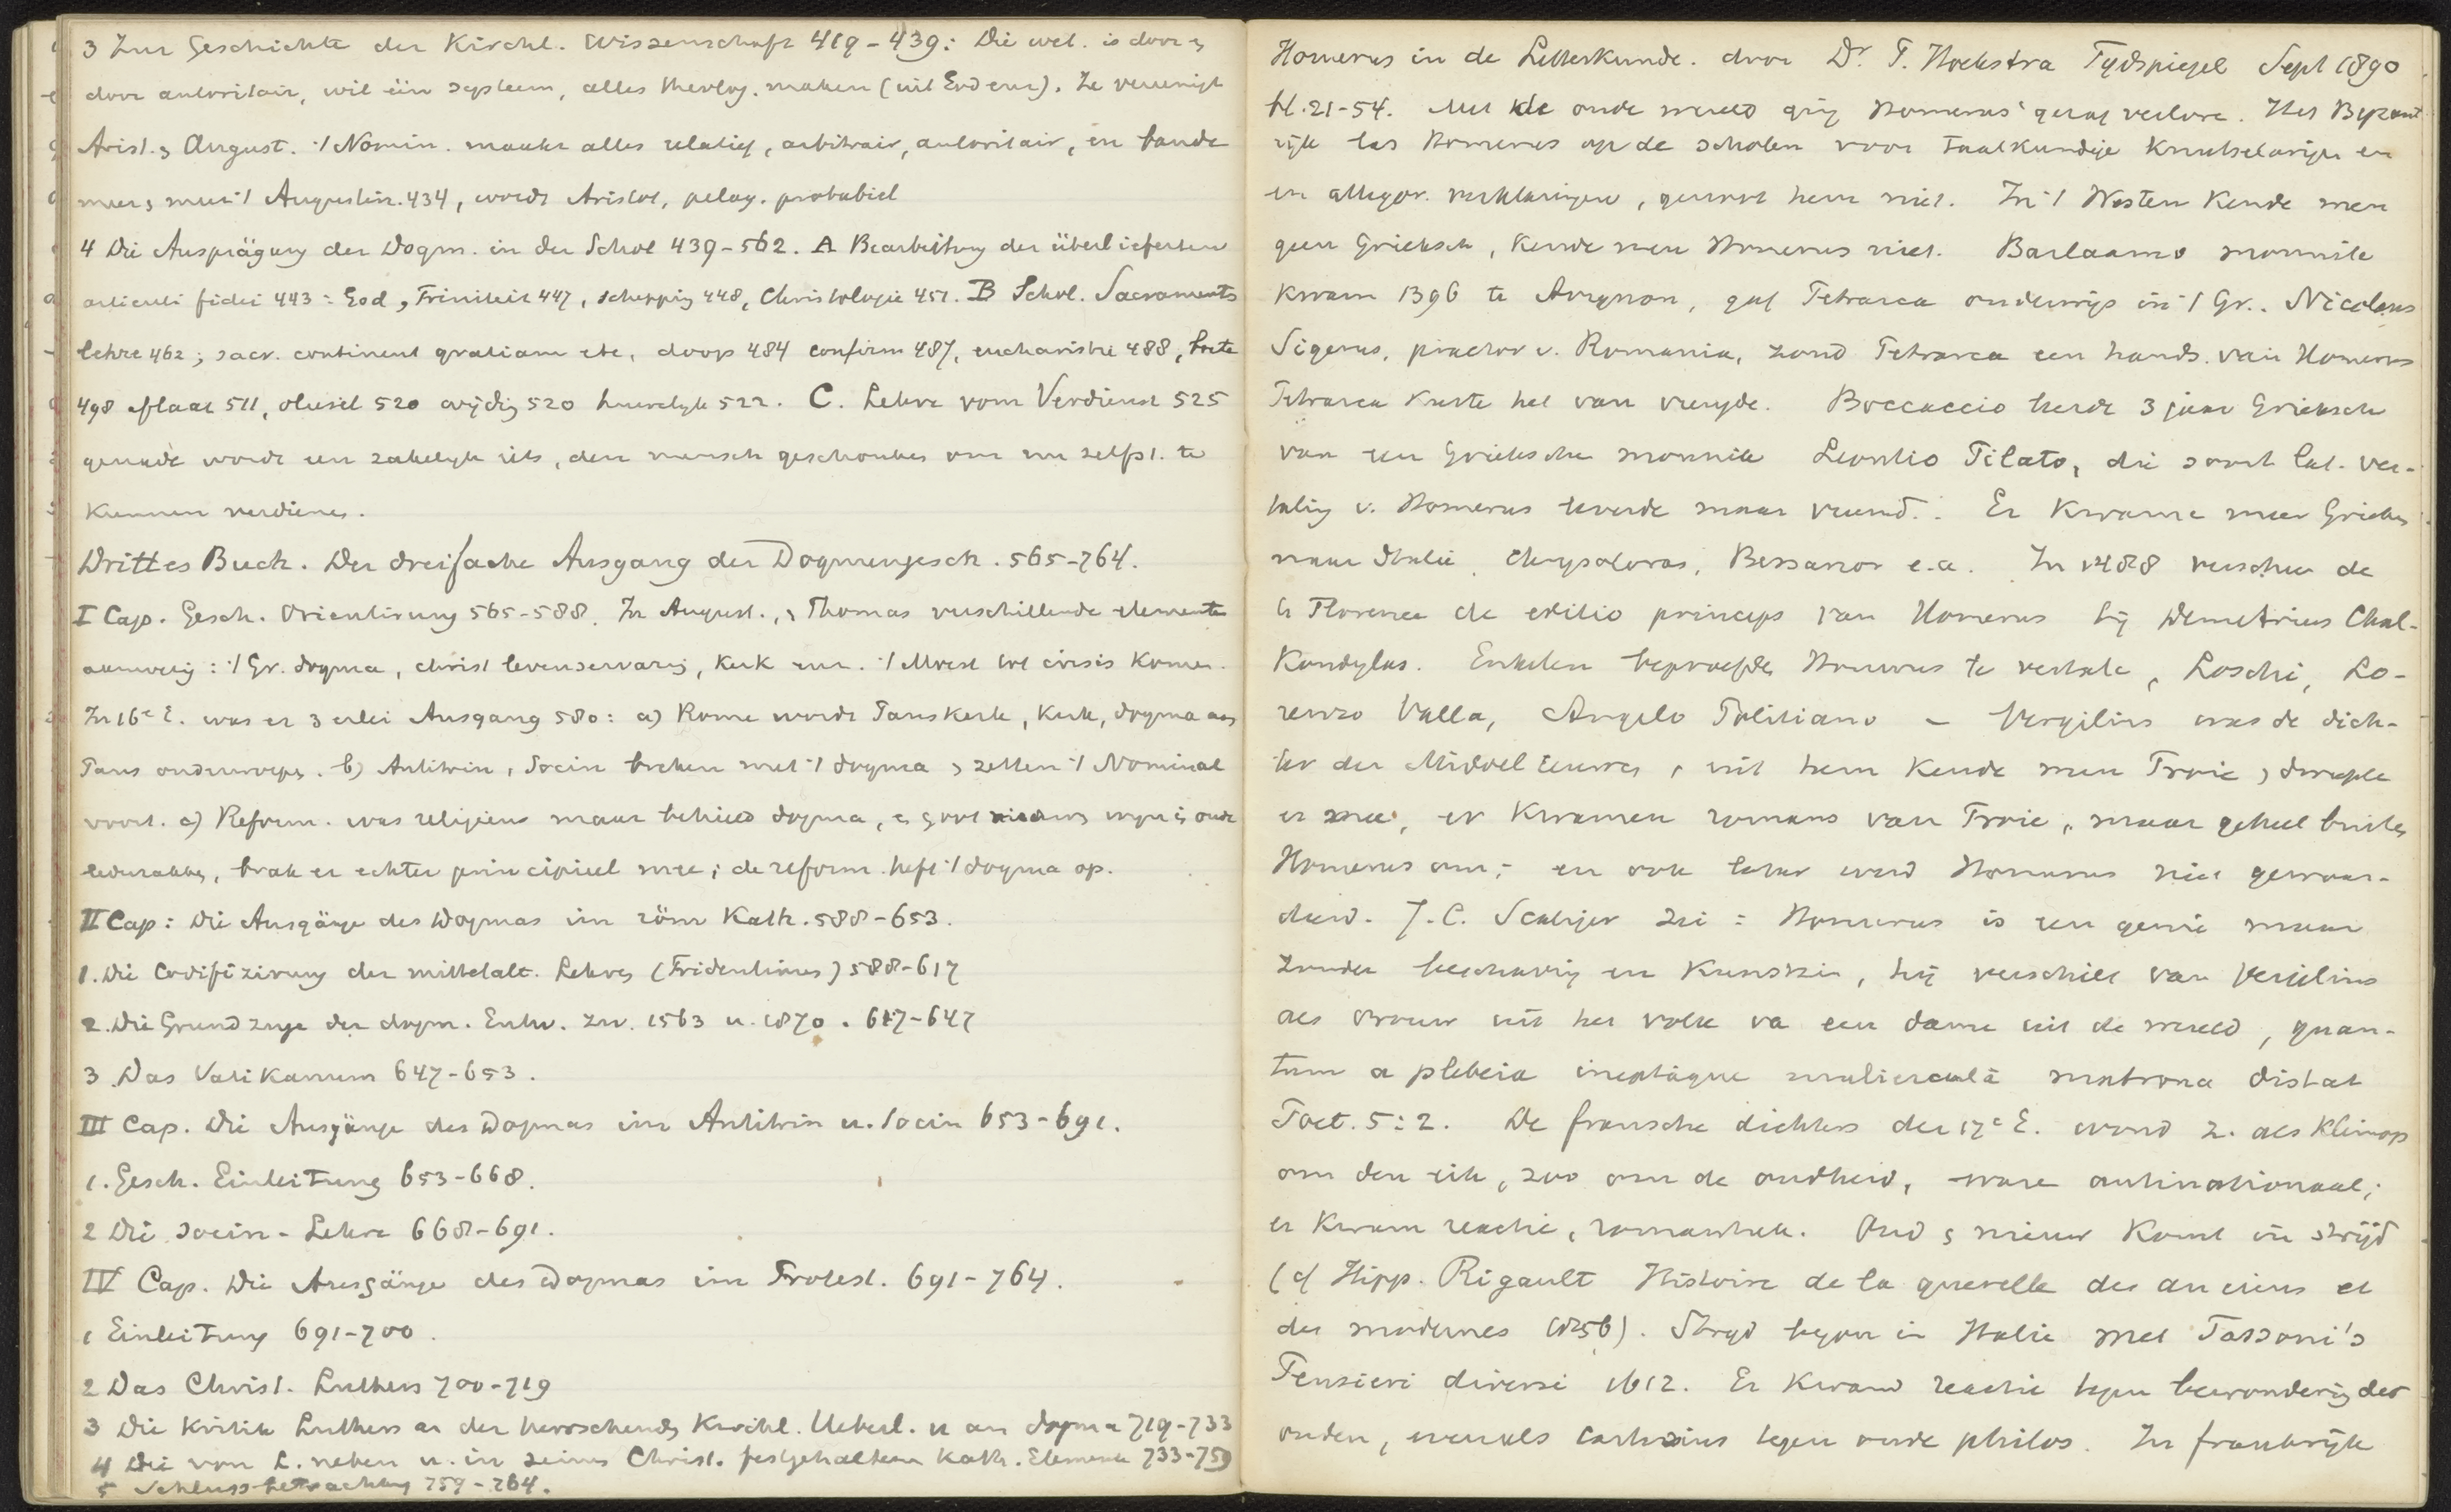 3 Zur Geschichte der Kirchl. Wissenschaft 419-439: Die wet. is door en
door autoritair, wil één systeem, alles theolog. maken (uit God enz). Ze vereenigt
Arist. en August. 't Nomin. maakt alles relatief, arbitrair, autoritair, en bande
meer en meer 't Augustin. 434, wordt Aristot, pelag. probabiel
4 Die Ausprägung der Dogm. in der Schol 439-562. A Bearbeitung der überlieferten
articuli fidei 443: God, Triniteit 447, schepping 448, Christologie 451. B Schol. Sacraments
lehre 462; sacr. continent gratiam etc, doop 484 confirm 487, eucharistie 488, boete
498 aflaat 511, oliesel 520 wijding 520 huwelijk 522. C. Lehre vom Verdienst 525
genade wordt een zakelijk iets, den mensch geschonken om nu zelfst. te
kunnen verdienen.
Drittes Buch. Der dreifache Ausgang der Dogmengesch. 565-764.
I Cap. Gesch. Orientirung 565-588. In August., en Thomas verschillende elementen
aanwezig: 't Gr. dogma, christ levenservaring, kerk enz. 't Moest tot crisis komen.
In 16e E. was er 3 erlei Ausgang 580: a) Rome wordt Pauskerk, kerk, dogma aan
Paus onderworpen. b) Antitrin, Socin breken met 't dogma en zetten 't Nominal
voort. c) Reform. was religieus maar behield dogma, en goot nieuwen wijn in oude
lederzakken, brak er echter principieel mee; de reform. heft 't dogma op.
II Cap: Die Ausgänge des Dogmas im röm Kath. 588-653.
1. Die Codifizirung der mittelalt. Lehren (Tridentinus) 588-617
2. Die Grundzuge der dogm. Entw. zw. 1563 u. 1870. 617-647
3 Das Vatikanum 647-653.
III Cap. Die Ausgänge des Dogmas im Antitrin u. Socin 653-691.
1. Gesch. Einleitung 653-668.
2 Die Socin-Lehre 668-691.
IV Cap. Die Ausgänge des Dogmas im Protest. 691-764.
1 Einleitung 691-700.
2 Das Christ. Luthers 700-719
3 Die Kritik Luthers an der herrschenden Kirchl. Ueberl. u an dogma 719-733
4 Die von L. neben u. in seinem Christ. festgehaltenen Kath. Elemente 733-759
5 Schlussbetrachtung 759-764.
Homerus in de Letterkunde. door Dr. T. Hoekstra Tydspiegel Sept 1890
bl. 21-54. Met de oude wereld ging Homerus' gezag verlore. Het Byzant
rijk las Homerus op de scholen voor taalkundige knutselarijen en
en allegor. verklaringen, genoot hem niet. In 't Westen kende men
geen Grieksch, kende men Homerus niet. Barlaamo monnik
kwam 1396 te Avignon, gaf Petrarca onderwijs in 't Gr.. Nicolaus
Sigerus, praetor v. Romania, zond Petrarca een hands. van Homerus
Petrarca kuste het van vreugde. Boccaccio leerde 3 jaar Grieksch
van een Grieksche monnik Leontio Pilato, die soort lat. ver-
taling v. Homerus leverde maar vreemd. Er kwame meer Grieken
naar Italië, Chrysoloras, Bessarion e.a. In 1488 verscheen de
te Florence de editio princeps van Homerus bij Demetrius Chal-
kondylas. Enkelen beproefden Homerus te vertale, Loschi, Lo-
renzo Valla, Angelo Politiano – Vergilius was de dich-
ter der Middel Eeuwen, uit hem kende men Troie, dweepte
er mee, er kwamen romans van Troie, maar geheel buiten
Homerus om; en ook later werd Homerus niet gewaar-
deerd. J.C. Scaliger zei: Homerus is een genie maar
zonder beschaving en kunstzin, hij verschilt van Vergilius
als vrouw uit het volk va een dame uit de wereld, quan-
tum a plebeia ineptaque muliercula matrona distat
Poet. 5:2. De fransche dichters der 17e E. wond z. als klimop
om den eik, zoo om de oudheid, ware antinationaal;
er kwam reactie, romantiek. Oud en nieuw komt in strijd
(cf Hipp. Rigault Histoire de la querelle des anciens et
des modernes (1856). Strijd begon in Italie met Tassoni's
Pensieri diversi 1612. Er kwam reactie tegen bewondering der
ouden, evenals Cartesius tegen oude philos. In frankrijk